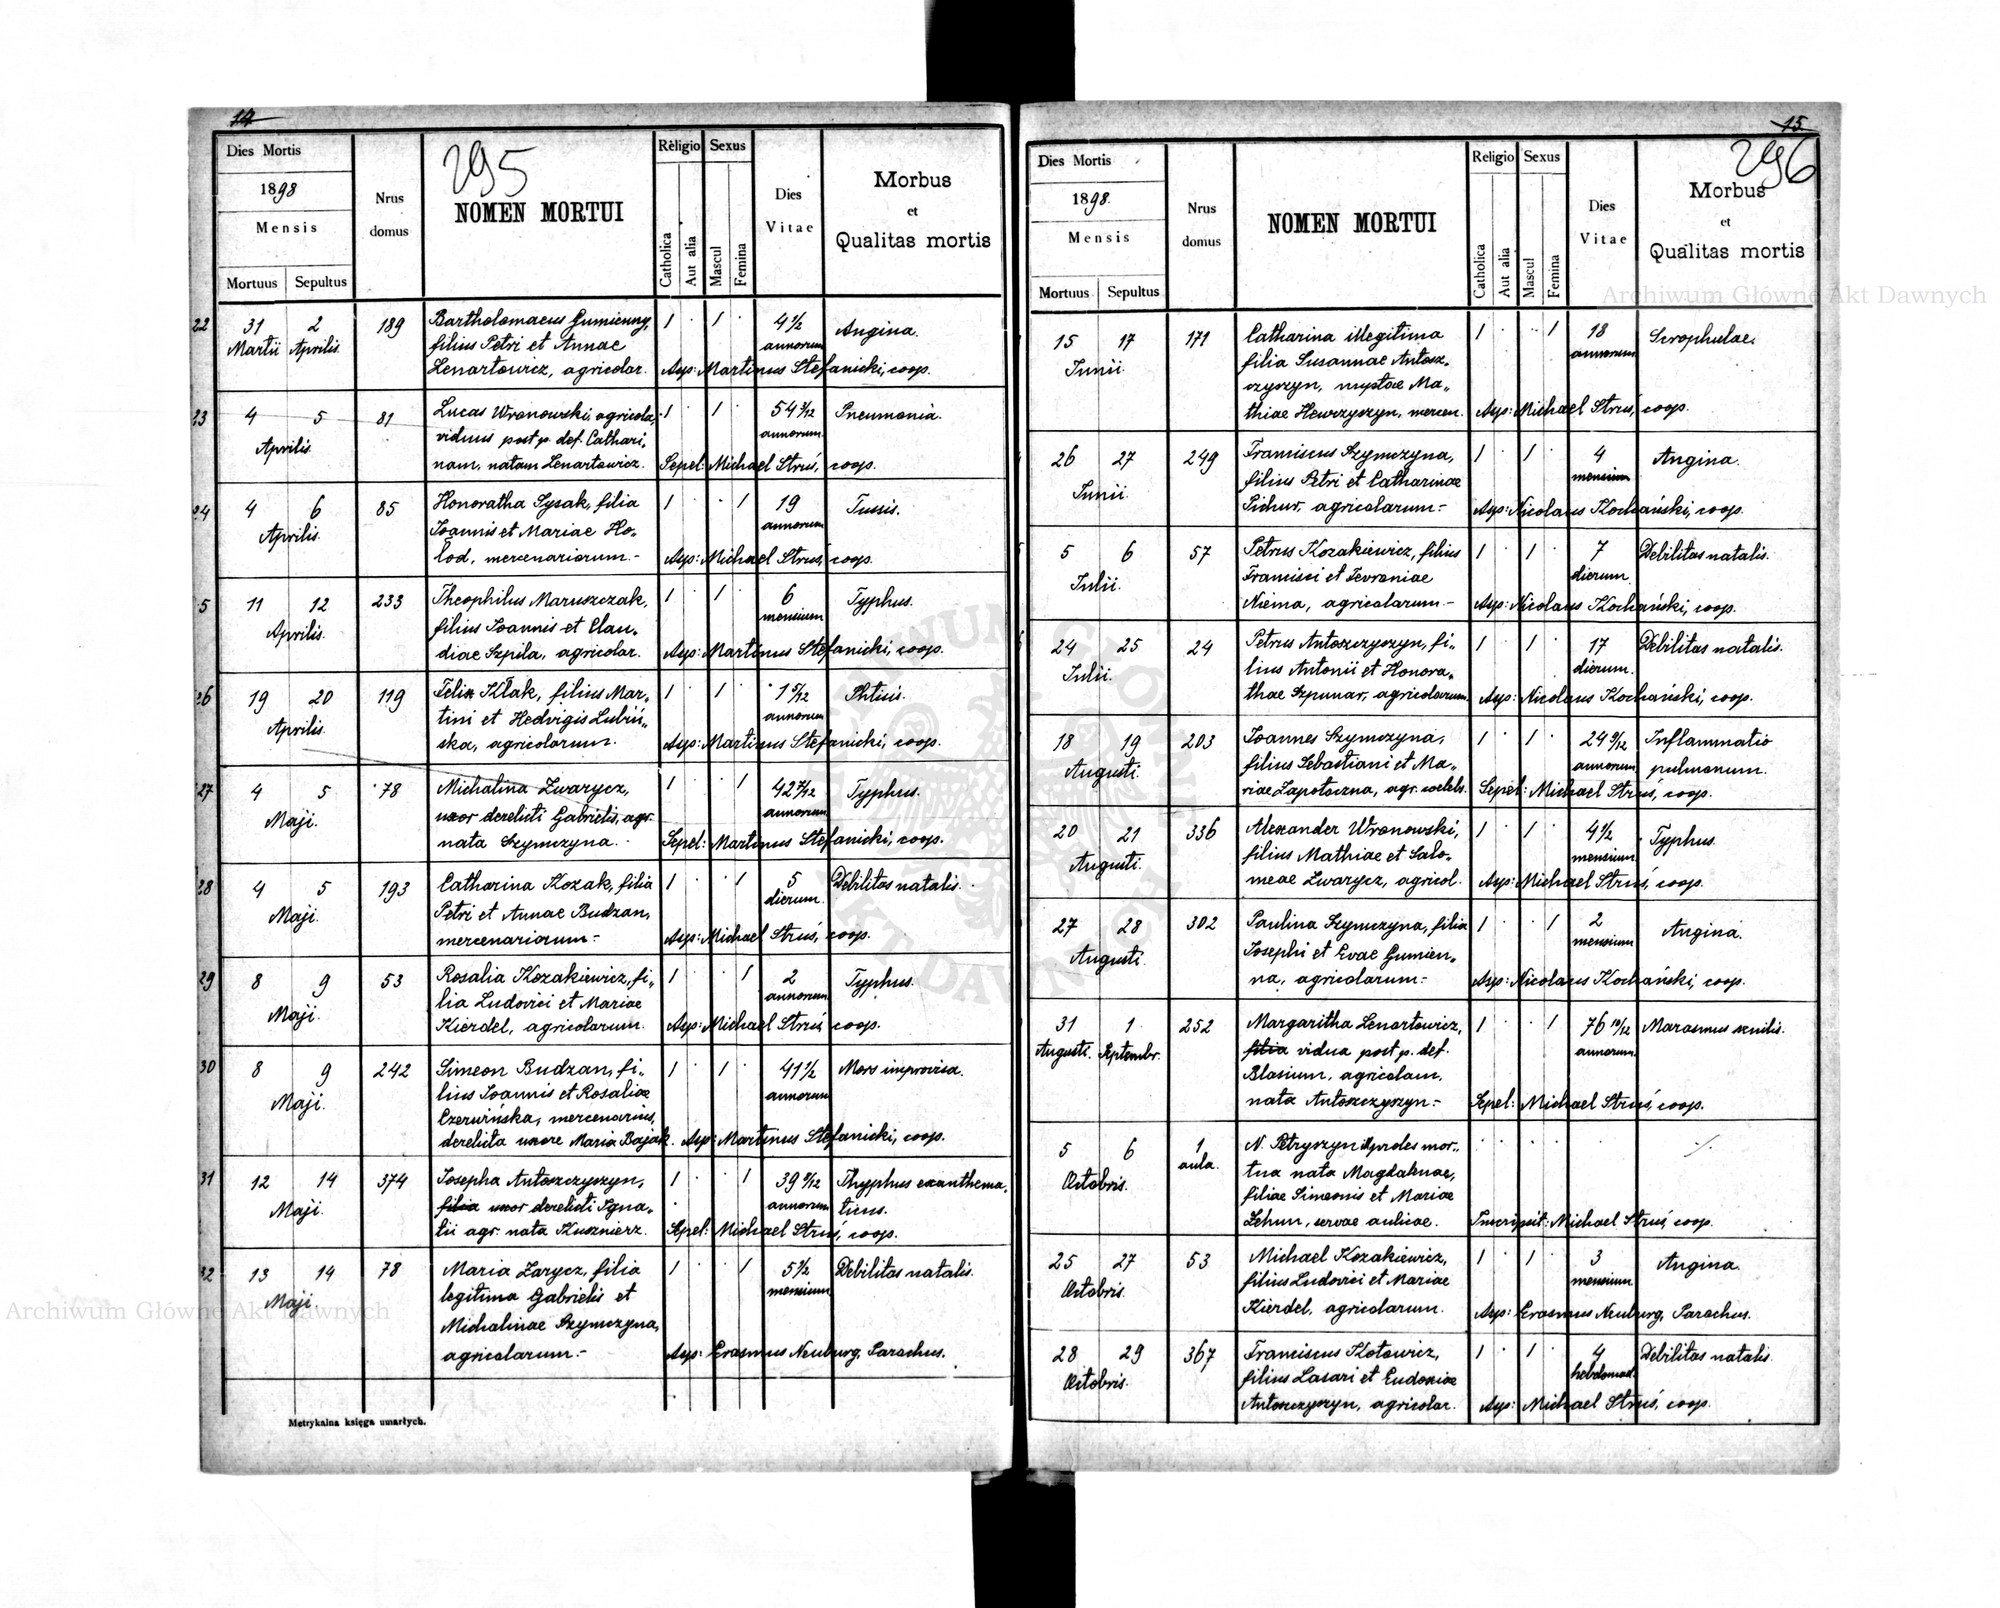 14
Dies Mortis
1898
Mensis
Mortuus Sepultus
Nrus
domus
295
NOMEN MORTUI
Religio
Catholica
Aut alia
Sexus
Mascul
Femina
Dies
Vitae
Morbus
et
Qualitas mortis
22 31 2 189 Bartholomaeus Gumienny, 1 · 1 · 4 1/2 Angina.
Martii Aprilis. filius Petri et Annae annorum
Lenartowicz, agricolar. Asp: Martinus Stefanicki, coop.
23 4 5 81 Lucas Wronowski, agricola, 1 · 1 · 54 3/12 Pneumonia.
Aprilis. viduus post p. def. Cathari„ annorum
nam, natam Lenartowicz. Sepel: Michael Struś, coop.
24 4 6 85 Honoratha Sysak, filia 1 · · 1 19 Tussis.
Aprilis. Joannis et Mariae Ho„ annorum
lod, mercenariorum.- Asp: Michael Struś, coop.
5 11 12 233 Theophilus Maruszczak, 1 · 1 · 6 Typhus.
Aprilis. filius Joannis et Clau„ mensium
diae Szpila, agricolar. Asp: Martinus Stefanicki, coop.
26 19 20 119 Felix Kłak, filius Mar„ 1 · 1 · 1 5/12 Phtisis.
Aprilis. tini et Hedvigis Lubiń„ annorum
ska, agricolarum. Asp: Martinus Stefanicki, coop.
27 4 5 78 Michalina Zwarycz, 1 · · 1 42 7/12 Typhus.
Maji. uxor derelicti Gabrielis, agr. annorum
nata Szymczyna. Sepel: Martinus Stefanicki, coop.
28 4 5 193 Catharina Kozak, filia 1 · · 1 5 Debilitas natalis.
Maji. Petri et Annae Budzan, dierum.
mercenariorum.- Asp: Michael Struś, coop.
29 8 9 53 Rosalia Kozakiewicz, fi„ 1 · · 1 2 Typhus.
Maji. lia Ludovici et Mariae annorum
Kierdel, agricolarum. Asp: Michael Struś, coop.
30 8 9 242 Simeon Budzan, fi„ 1 · 1 · 41 1/2 Mors improvisa.
Maji. lius Joannis et Rosaliae annorum
Czerwińska, mercenarius,
derelicta uxore Maria Bajak. Asp: Martinus Stefanicki, coop.
31 12 14 374 Josepha Antoszczyszyn, 1 · · 1 39 Thyphus exanthema„
Maji. filia uxor derelicti Igna„ annorum ticus.
tii agr. nata Kusznierz. Sepel: Michael Struś, coop.
32 13 14 78 Maria Zarycz, filia 1 · · 1 5 1/2 Debilitas natalis.
Maji. legitima Gabrielis et mensium
Michalinae Szymczyna,
agricolarum.- Asp: Erasmus Neuburg, Parochus.
Metrykalna księga umarłych.
15
296
Dies Mortis
1898.
Mensis
Mortuus Sepultus
Nrus
domus
NOMEN MORTUI
Religio
Catholica
Aut alia
Sexus
Mascul
Femina
Dies
Vitae
Morbus
et
Qualitas mortis
15 17 171 Catharina illegitima 1 · · 1 18 Scrophulae.
Junii. filia Susannae Antosz„ annorum
czyszyn, nuptae Ma„
thiae Hewczyszyn, mercen. Asp: Michael Struś, coop.
26 27 249 Franciscus Szymczyna, 1 · 1 · 4 Angina.
Junii. filius Petri et Catharinae mensium
Pichur, agricolarum.- Asp: Nicolaus Kochański, coop.
5 6 57 Petrus Kozakiewicz, filius 1 · 1 · 7 Debilitas natalis.
Julii. Francisci et Fevroniae dierum.
Niema, agricolarum.- Asp: Nicolaus Kochański, coop.
24 25 24 Petrus Antoszczyszyn, fi„ 1 · 1 · 17 Debilitas natalis.
Julii. lius Antonii et Honora„ dierum.
thae Szpunar, agricolarum. Asp: Nicolaus Kochański, coop.
18 19 203 Joannes Szymczyna, 1 · 1 · 24 9/12 Inflammatio
Augusti. filius Sebastiani et Ma„ annorum pulmonum.
riae Zapotoczna, agr. coelebs. Sepel: Michael Struś, coop.
20 21 336 Alexander Wronowski, 1 · 1 · 4 1/2 Typhus.
Augusti. filius Mathiae et Salo„ mensium
meae Zwarycz, agricol. Asp: Michael Struś, coop.
27 28 302 Paulina Szymczyna, filia 1 · · 1 2 Angina.
Augusti. Josephi et Evae Gumien„ mensium
na, agricolarum.- Asp: Nicolaus Kochański, coop.
31 1 252 Margaritha Lenartowicz, 1 · · 1 76 10/12 Marasmus senilis.
Augusti. Septembr. filia vidua post p. def. annorum
Blasium, agricolam,
nata Antoszczyszyn.- Sepel: Michael Struś, coop.
5 6 1 N. Petryszyn proles mor„
Octobris. aula. tua nata Magdalenae,
filiae Simeonis et Mariae
Lehun, servae aulicae. Inscripsit: Michael Struś, coop.
25 27 53 Michael Kozakiewicz, 1 · 1 · 3 Angina.
Octobris. filius Ludovici et Mariae mensium
Kierdel, agricolarum. Asp: Erasmus Neuburg, Parochus.
28 29 367 Franciscus Kotowicz, 1 · 1 · 4 Debilitas natalis.
Octobris. filius Lasari et Eudoxiae hebdomad.
Antoszczyszyn, agricolar. Asp: Michael Struś, coop.
Archiwum Główne Akt Dawnych
Archiwum Główne Akt Dawnych
ARCHIWUM GŁÓWNE AKT DAWNYCH